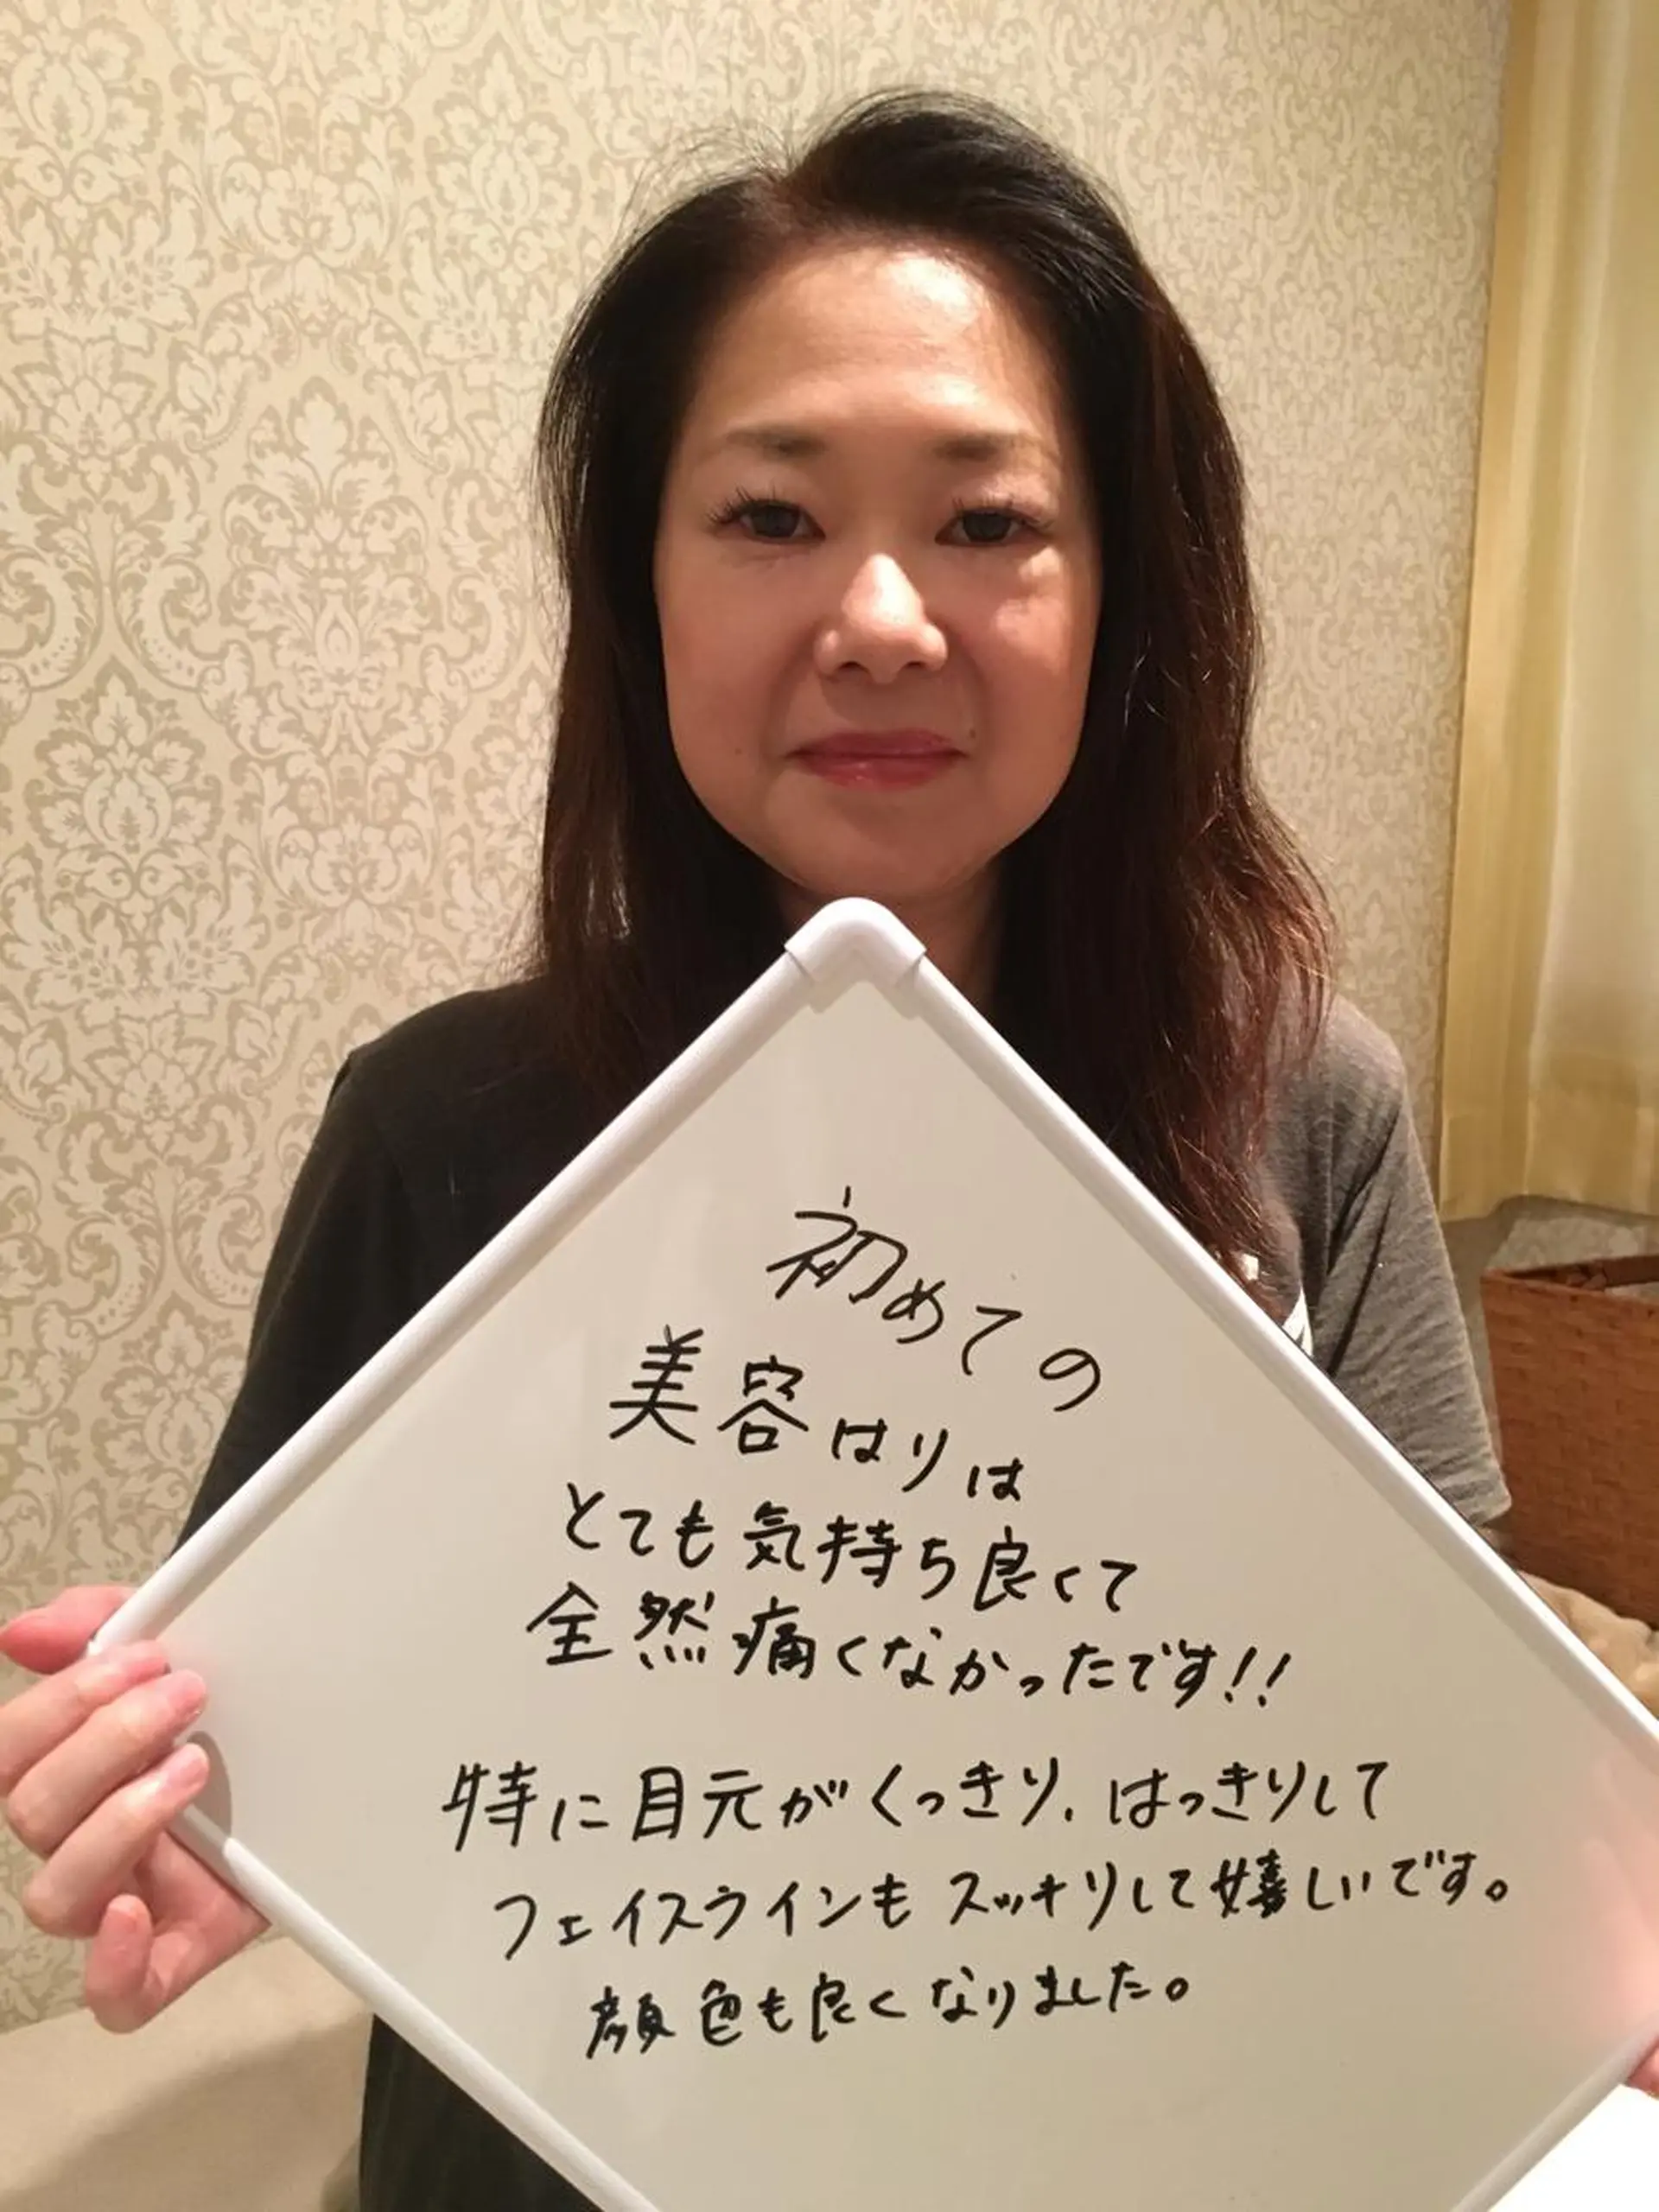 初めての
美容はりは
とても気持ち良くて
全然痛くなかったです!!
特に目元がくっきり、はっきりして
フェイスラインもスッキリして嬉しいです。
顔色も良くなりました。